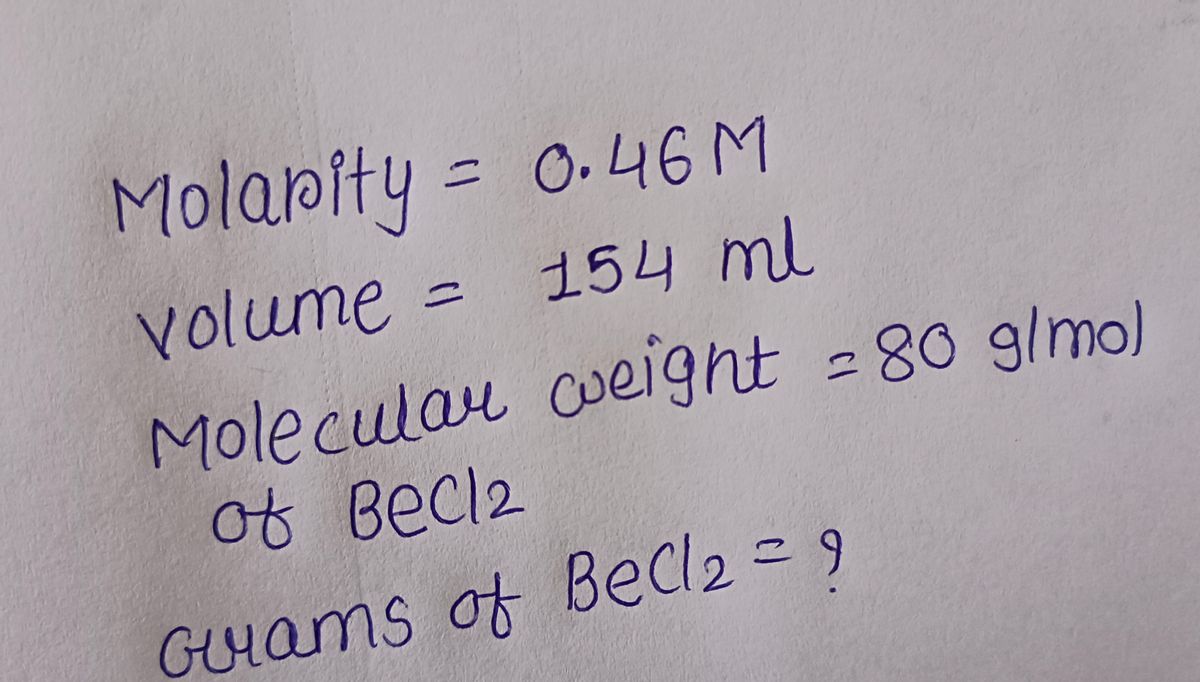 Molarity = 0.46 M
volume = 154 ml
Molecular weight = 80 g/mol
of BeCl2
Grams of BeCl2 = ?